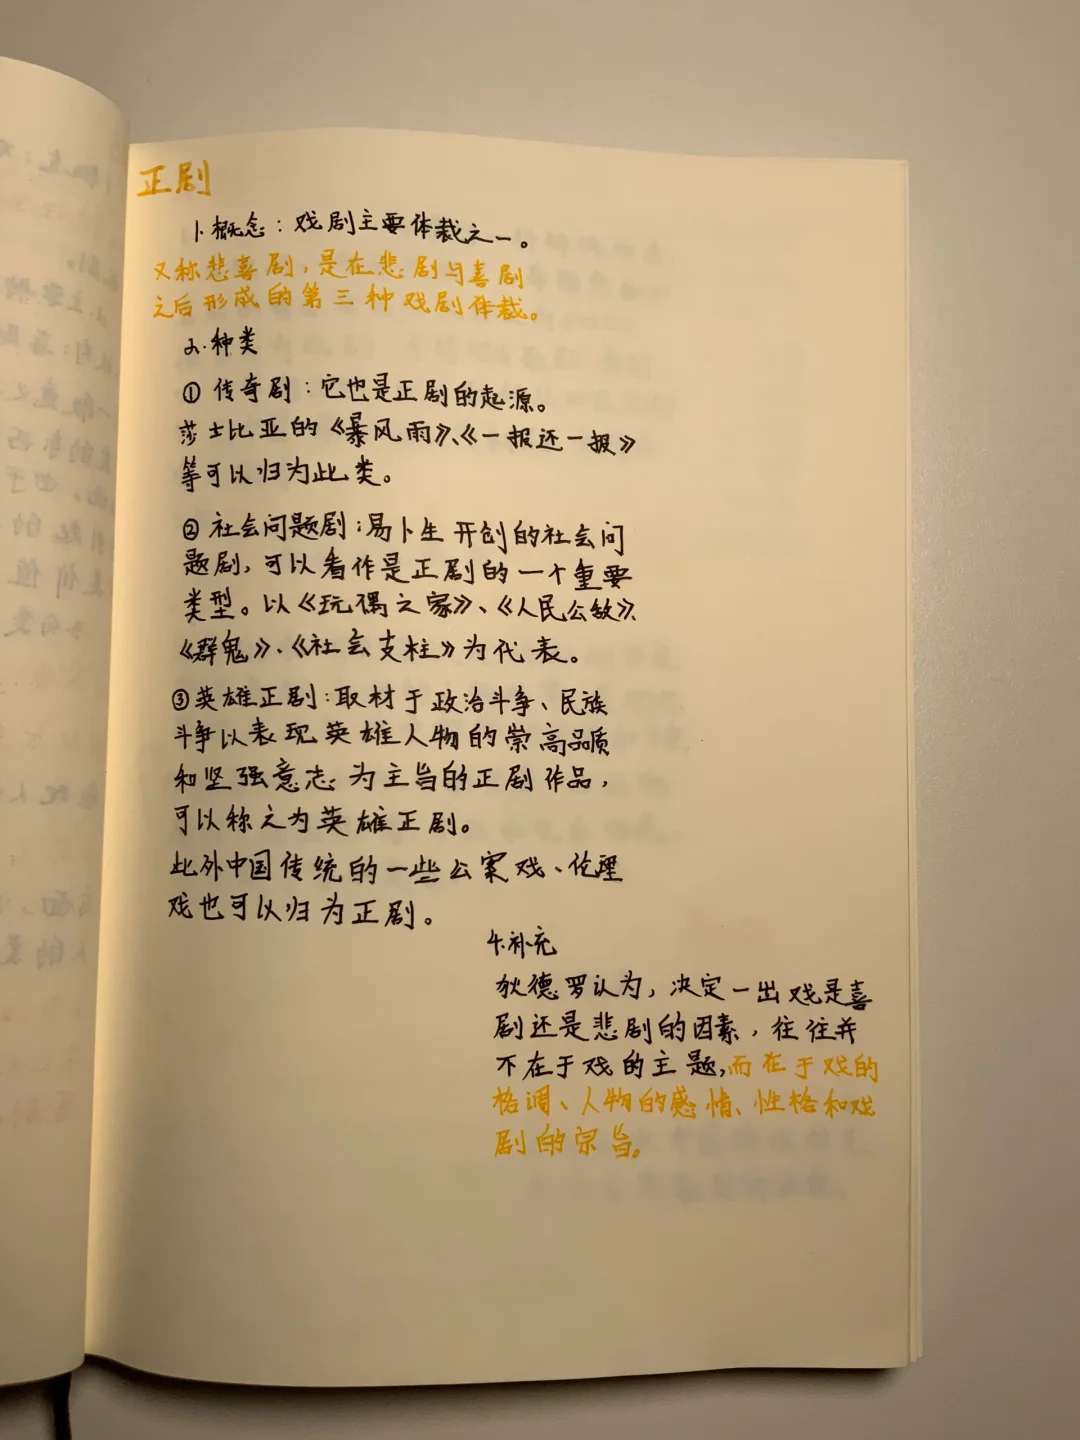 正剧
1. 概念：戏剧主要体裁之一。
又称悲喜剧，是在悲剧与喜剧
之后形成的第三种戏剧体裁。
2. 种类
① 传奇剧：它也是正剧的起源。
莎士比亚的《暴风雨》、《一报还一报》
等可以归为此类。
② 社会问题剧：易卜生开创的社会问
题剧，可以看作是正剧的一个重要
类型。以《玩偶之家》、《人民公敌》、
《群鬼》、《社会支柱》为代表。
③ 英雄正剧：取材于政治斗争、民族
斗争以表现英雄人物的崇高品质
和坚强意志为主旨的正剧作品，
可以称之为英雄正剧。
此外中国传统的一些公案戏、伦理
戏也可以归为正剧。
4. 补充
狄德罗认为，决定一出戏是喜
剧还是悲剧的因素，往往并
不在于戏的主题，而在于戏的
格调、人物的感情、性格和戏
剧的宗旨。